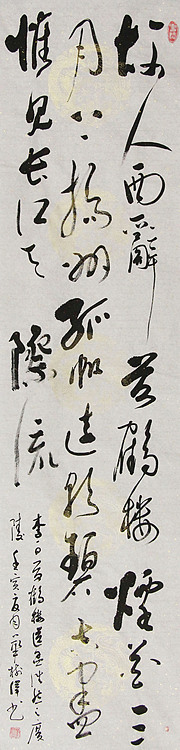 故人西辭黄鶴樓煙花三
月下揚州孤帆遠影碧空盡
惟見长江天際流
李白黄鶴樓送孟浩然之廣
陵壬寅夏月